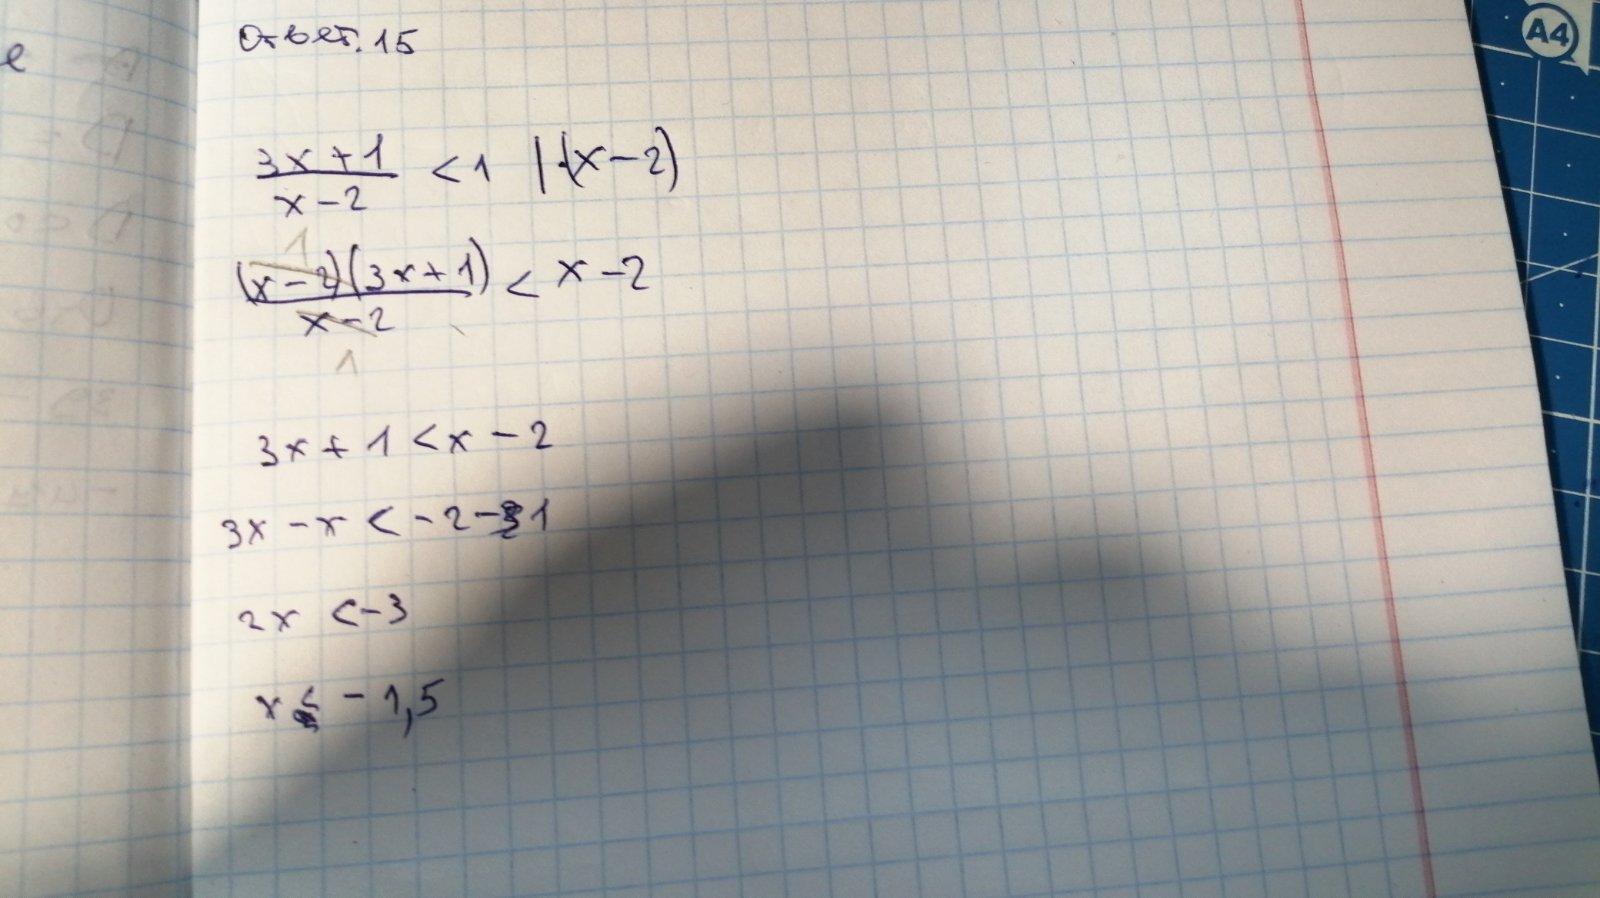 e
Ответ. 15
3x + 1 / x - 2 < 1 | ·(x - 2)
1
(x - 2)(3x + 1) / x - 2 < x - 2
1
3x + 1 < x - 2
3x - x < - 2 - 1
2x < - 3
x < - 1,5
A4